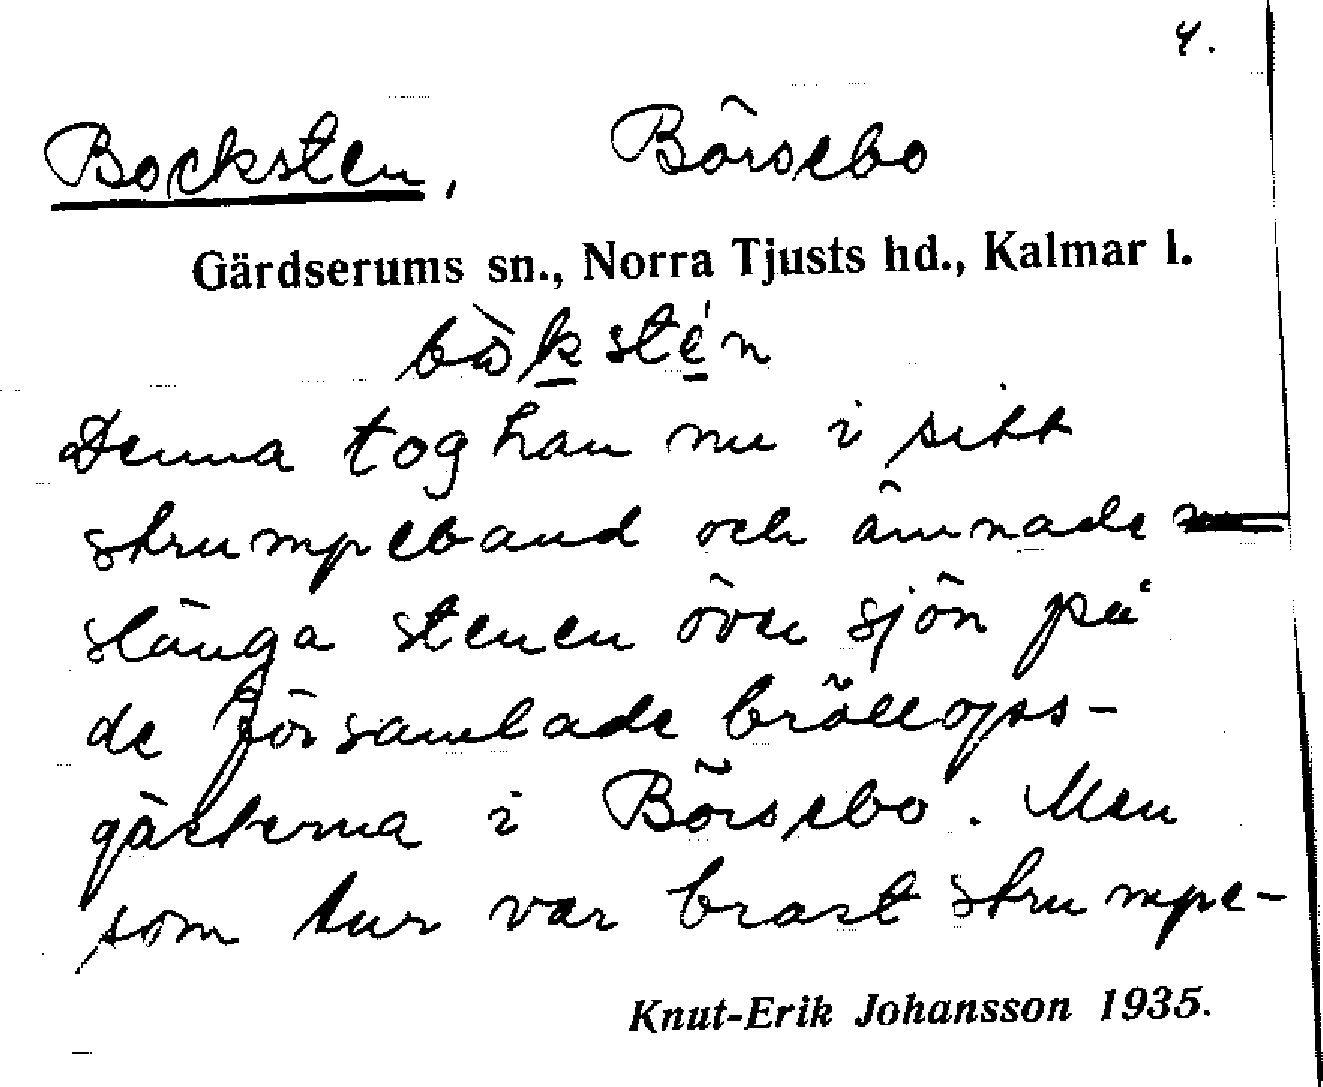 4.
Bocksten, Börsebo
Gärdserums sn., Norra Tjusts hd., Kalmar l.
bòksté́n
Denna tog han nu i sitt
strumpeband och ämnade
slänga stenen över sjön på
de församlade bröllops-
gästerna i Börsebo. Men
som tur var brast strumpe-
Knut-Erik Johansson 1935.